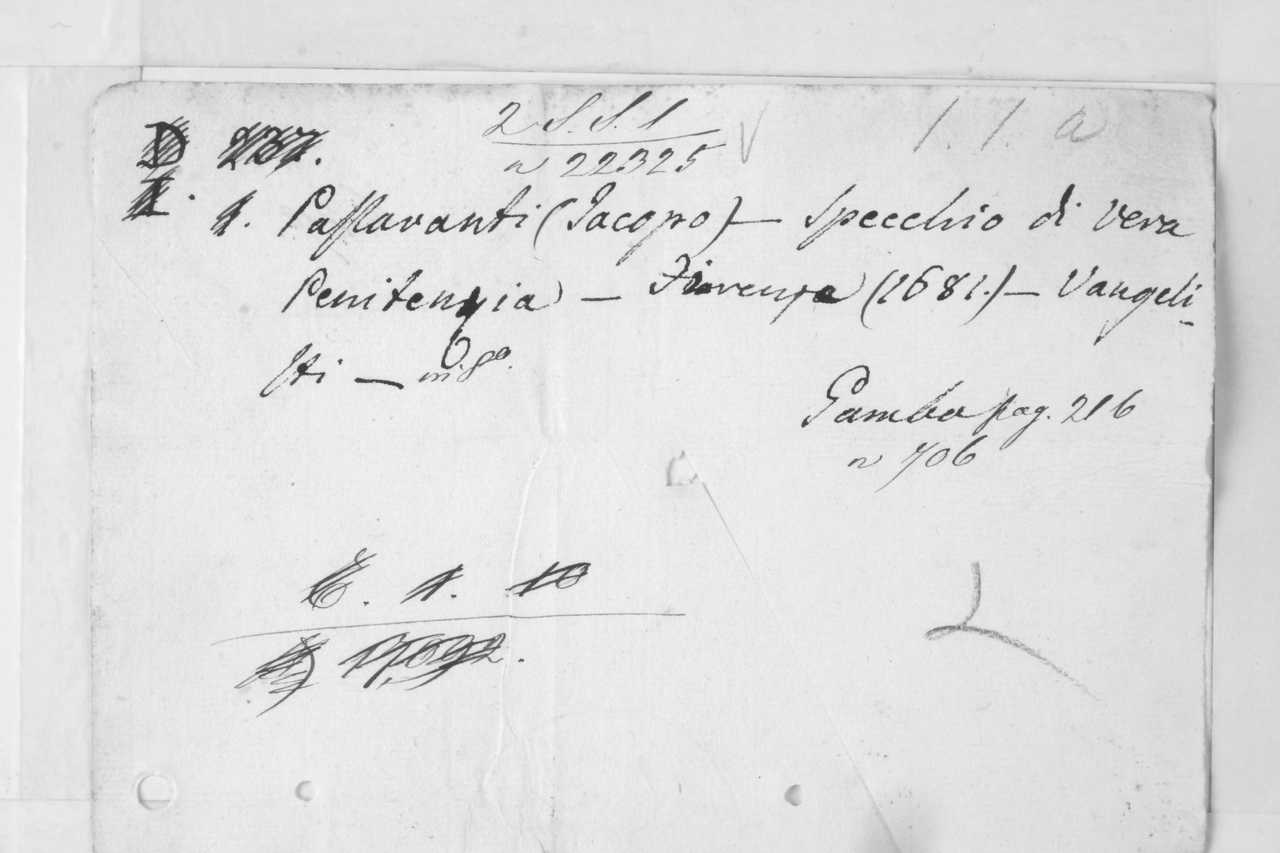 2 S. S. 1
n 22325
1. 1. a
1. Passavanti (Jacopo) — Specchio di vera
Penitenzia — Firenze (1681.) — Vangeli-
sti — in 8º.
Gamba pag. 216
n 706
E. 1. 10